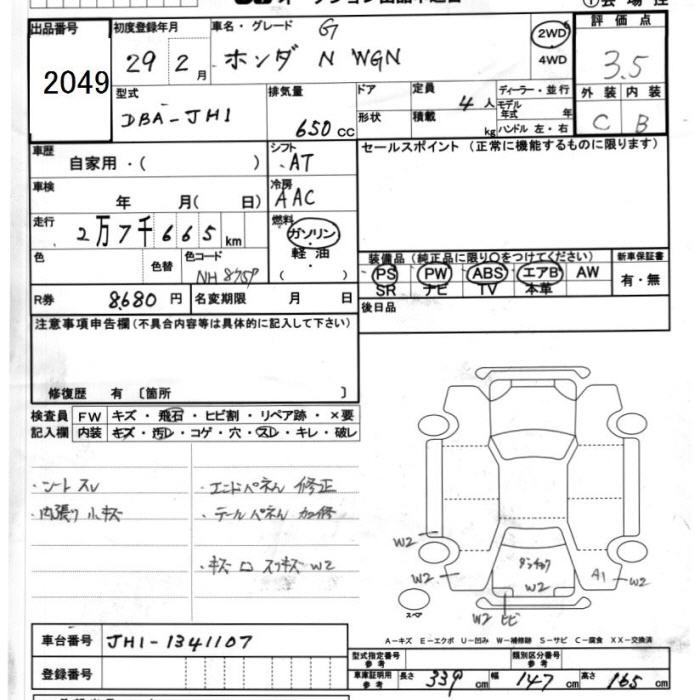 出品番号
2049
初度登録年月
29 2月
車名・グレード G
ホンダ N WGN
2WD
4WD
評価点
3.5
外装 内装
C B
型式
DBA-JH1
排気量
650 cc
ドア
形状
定員
4人
積載
kg
ディーラー・並行
モデル年式 年
ハンドル 左・右
車歴
自家用・( )
シフト
AT
セールスポイント(正常に機能するものに限ります)
車検
年 月( 日)
冷房
AAC
走行
2万7千665km
燃料
ガソリン
軽油
( )
色
色替
色コード
装備品(純正品に限り○をつけてください)
PS PW ABS エアB AW
SR ナビ TV 本革
新車保証書
有・無
R券 8680円
名変期限 月 日
後日品
注意事項申告欄(不具合内容等は具体的に記入して下さい)
修復歴 有〔箇所 〕
検査員
記入欄
FW キズ・飛石・ヒビ割・リペア跡・×要
内装 キズ・汚レ・コゲ・穴・スレ・キレ・破レ
・シートスレ
・内張り小キズ
・エンドパネル 修正
・テールパネル カロ修
W2
W2
W2
A1
W2
W2 ヒビ
スペア
A-キズ E-エクボ U-凹み W-補修跡 S-サビ C-腐食 XX-交換済
車台番号 JH1-1341107
登録番号
型式指定番号
参考
類別区分番号
参考
車庫証明用
参考
長さ 339cm 幅 147cm 高さ 165cm